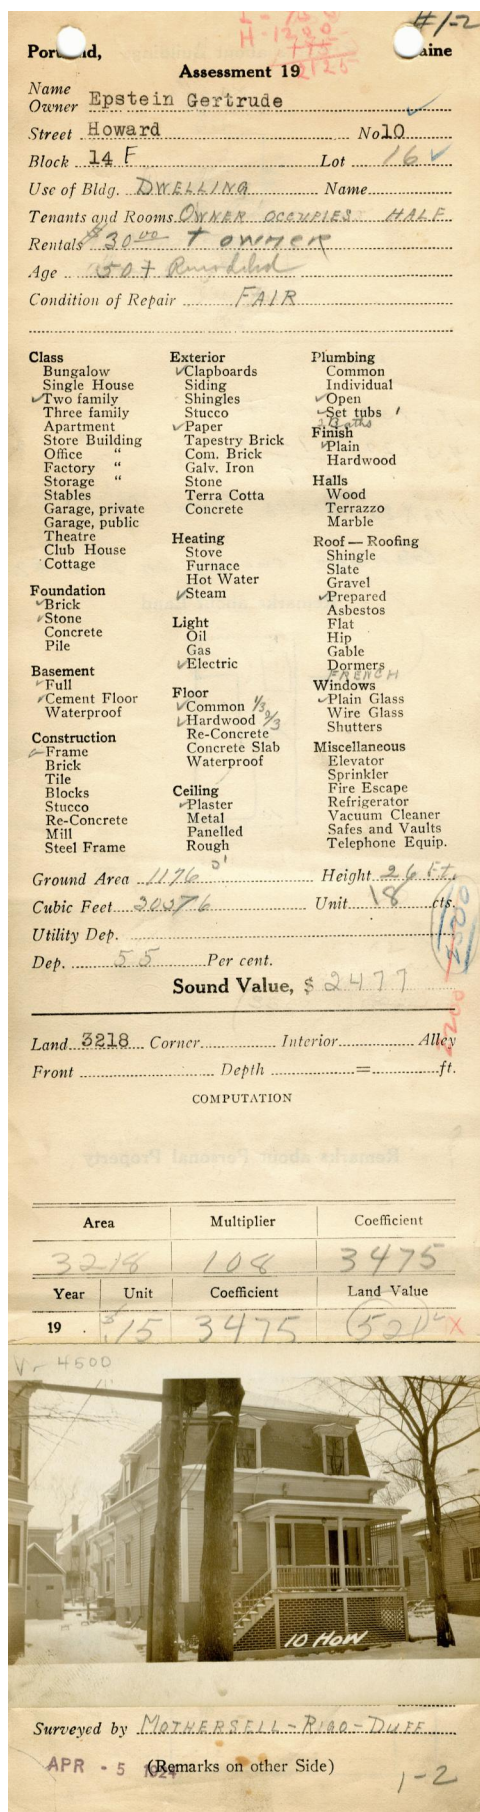 #1-2
Portland, Maine
Assessment 19
Name
Owner Epstein Gertrude
Street Howard No 10
Block 14 F Lot 16
Use of Bldg. DWELLING Name
Tenants and Rooms OWNER OCCUPIES HALF
Rentals $30.00 + OWNER
Age 50+ Remodeled
Condition of Repair FAIR
Class
Bungalow
Single House
✓Two family
Three family
Apartment
Store Building
Office "
Factory "
Storage "
Stables
Garage, private
Garage, public
Theatre
Club House
Cottage
Foundation
✓Brick
✓Stone
Concrete
Pile
Basement
✓Full
✓Cement Floor
Waterproof
Construction
✓Frame
Brick
Tile
Blocks
Stucco
Re-Concrete
Mill
Steel Frame
Exterior
✓Clapboards
Siding
Shingles
Stucco
✓Paper
Tapestry Brick
Com. Brick
Galv. Iron
Stone
Terra Cotta
Concrete
Heating
Stove
Furnace
Hot Water
✓Steam
Light
Oil
Gas
✓Electric
Floor
✓Common 1/3
✓Hardwood 2/3
Re-Concrete
Concrete Slab
Waterproof
Ceiling
✓Plaster
Metal
Panelled
Rough
Plumbing
Common
Individual
✓Open
✓Set tubs
2 Baths
Finish
✓Plain
Hardwood
Halls
Wood
Terrazzo
Marble
Roof — Roofing
Shingle
Slate
Gravel
✓Prepared
Asbestos
Flat
Hip
Gable
Dormers
FRENCH
Windows
✓Plain Glass
Wire Glass
Shutters
Miscellaneous
Elevator
Sprinkler
Fire Escape
Refrigerator
Vacuum Cleaner
Safes and Vaults
Telephone Equip.
Ground Area 1176 Height 26 Ft.
Cubic Feet 30576 Unit 18 cts.
Utility Dep.
Dep. 55 Per cent.
Sound Value, $ 2477
Land 3218 Corner Interior Alley
Front Depth = ft.
COMPUTATION
Area Multiplier Coefficient
3218 108 3475
Year Unit Coefficient Land Value
19 $.15 3475 521
4500
10 HOW
Surveyed by MOTHERSELL-RIGO-DUFF
APR - 5 1924 (Remarks on other Side)
1-2